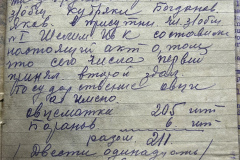 злобы Кубряки Богданов
в присутствии чл. злобы
"I Шелип И. К составили
настоящий акт о том,
что сего числа первый
принял второй здал
государственые овци
а именно
овцематки 205 шт
Баранов 6 шт
разом 211
(Двести одинадцать)